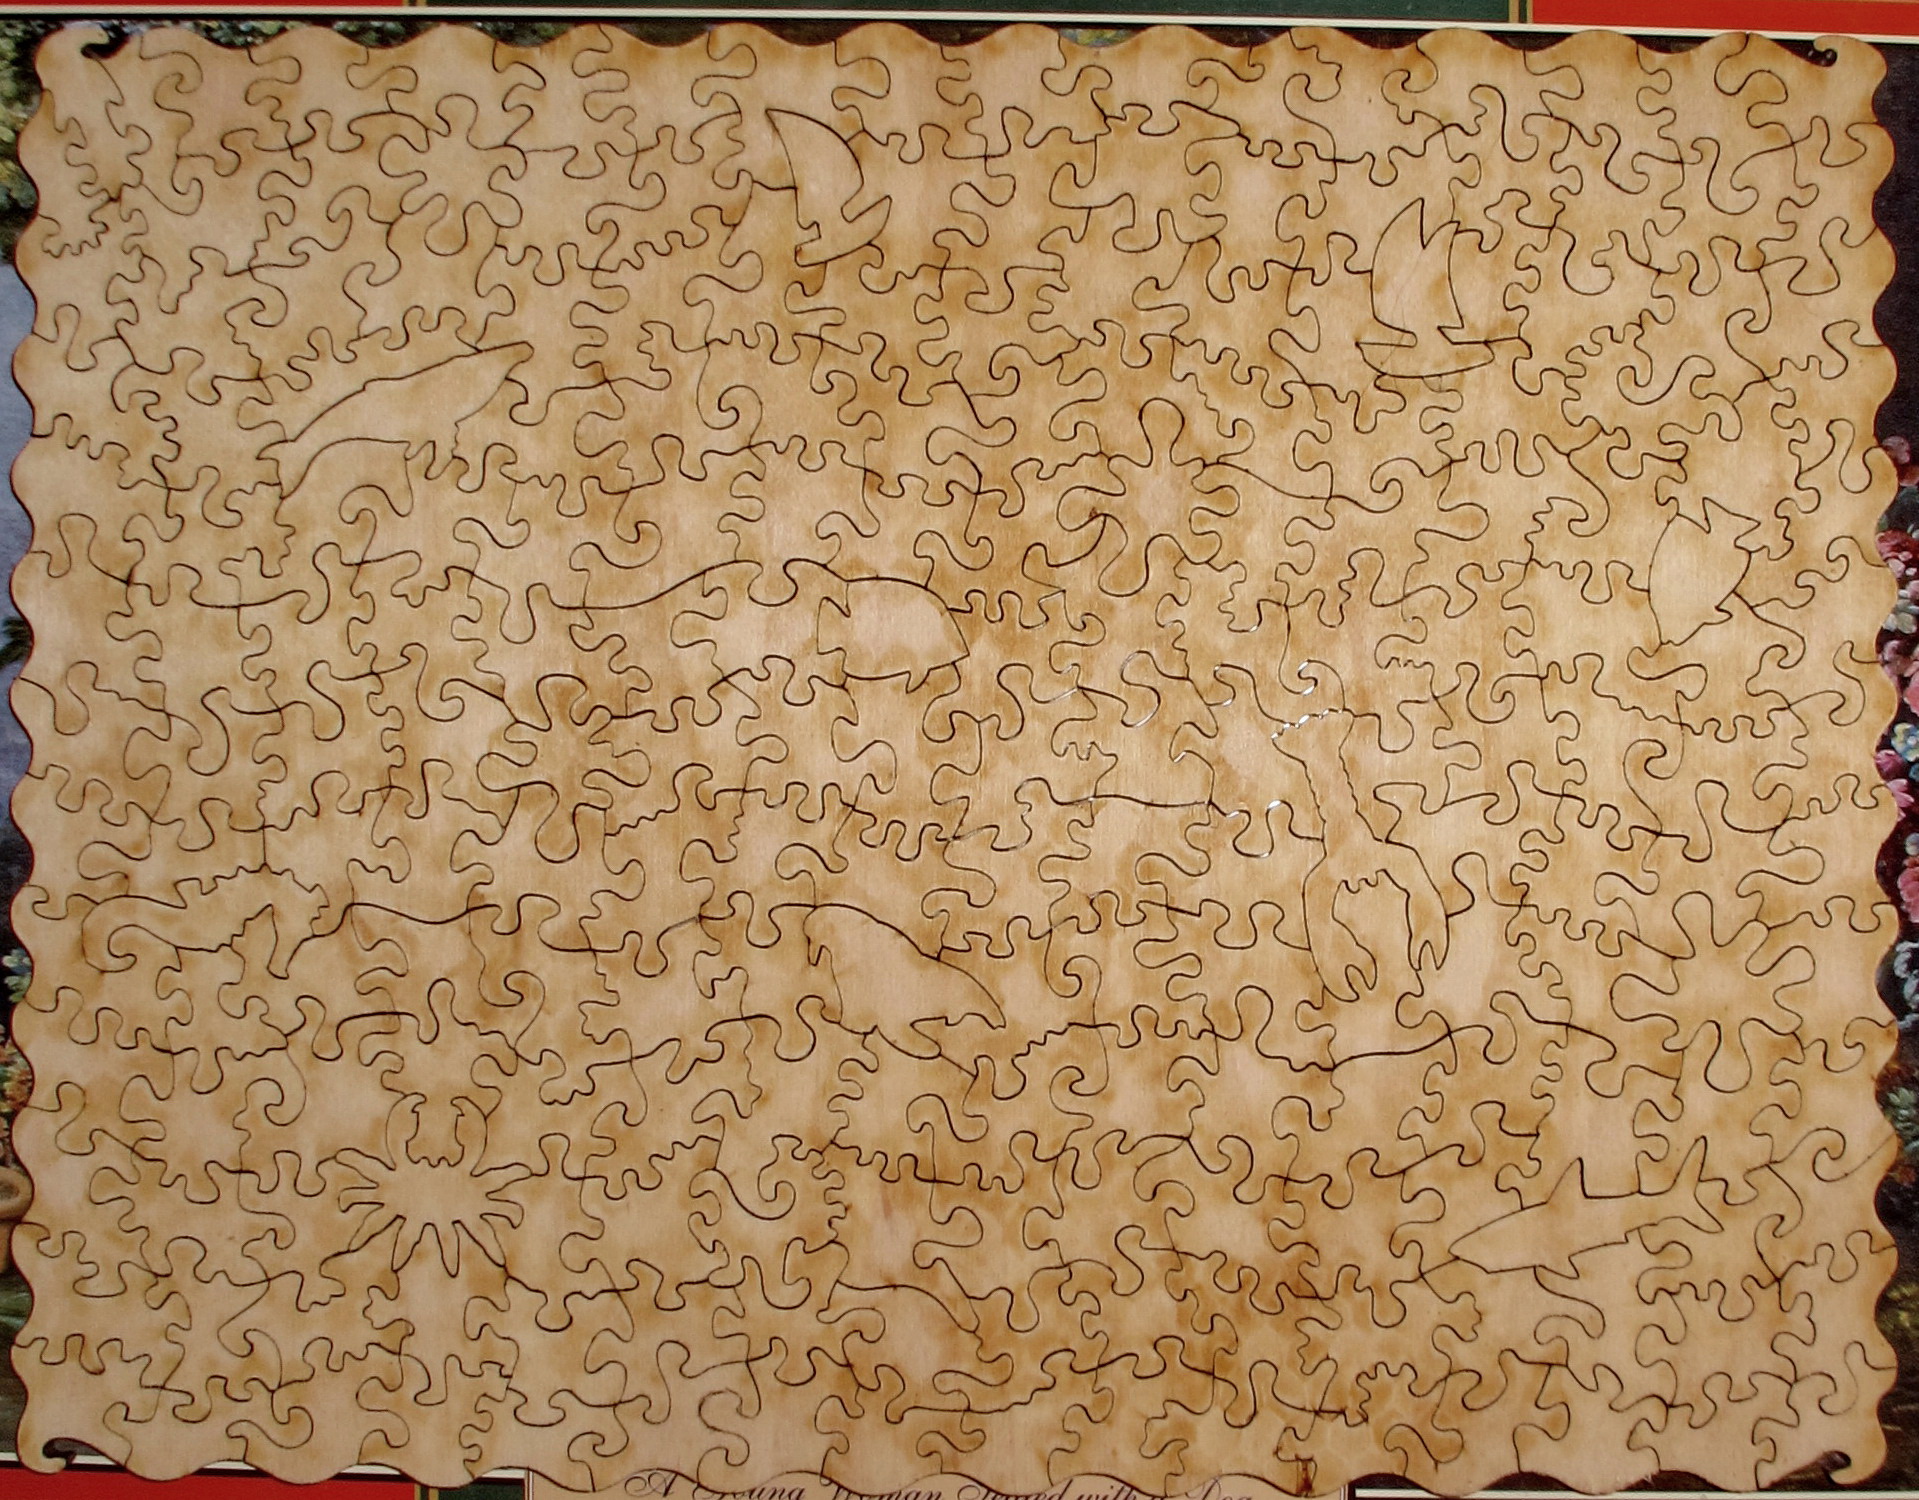 A Young Woman Seated with a Dog